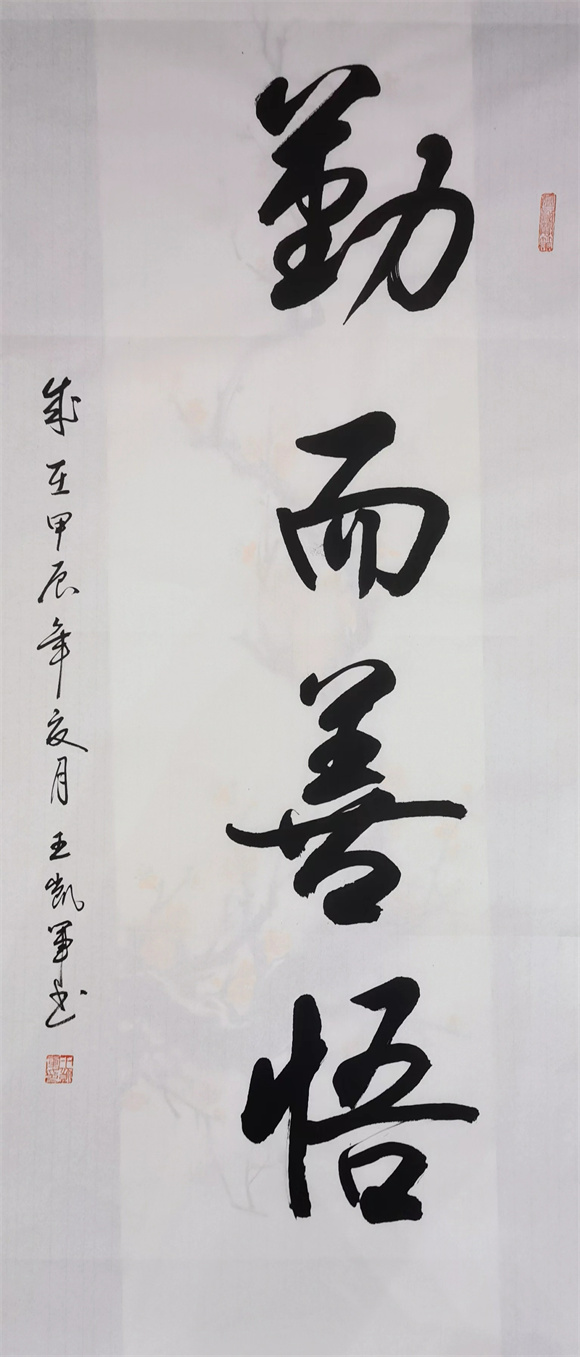 勤而善悟
歲在甲辰年夏月王凯军书